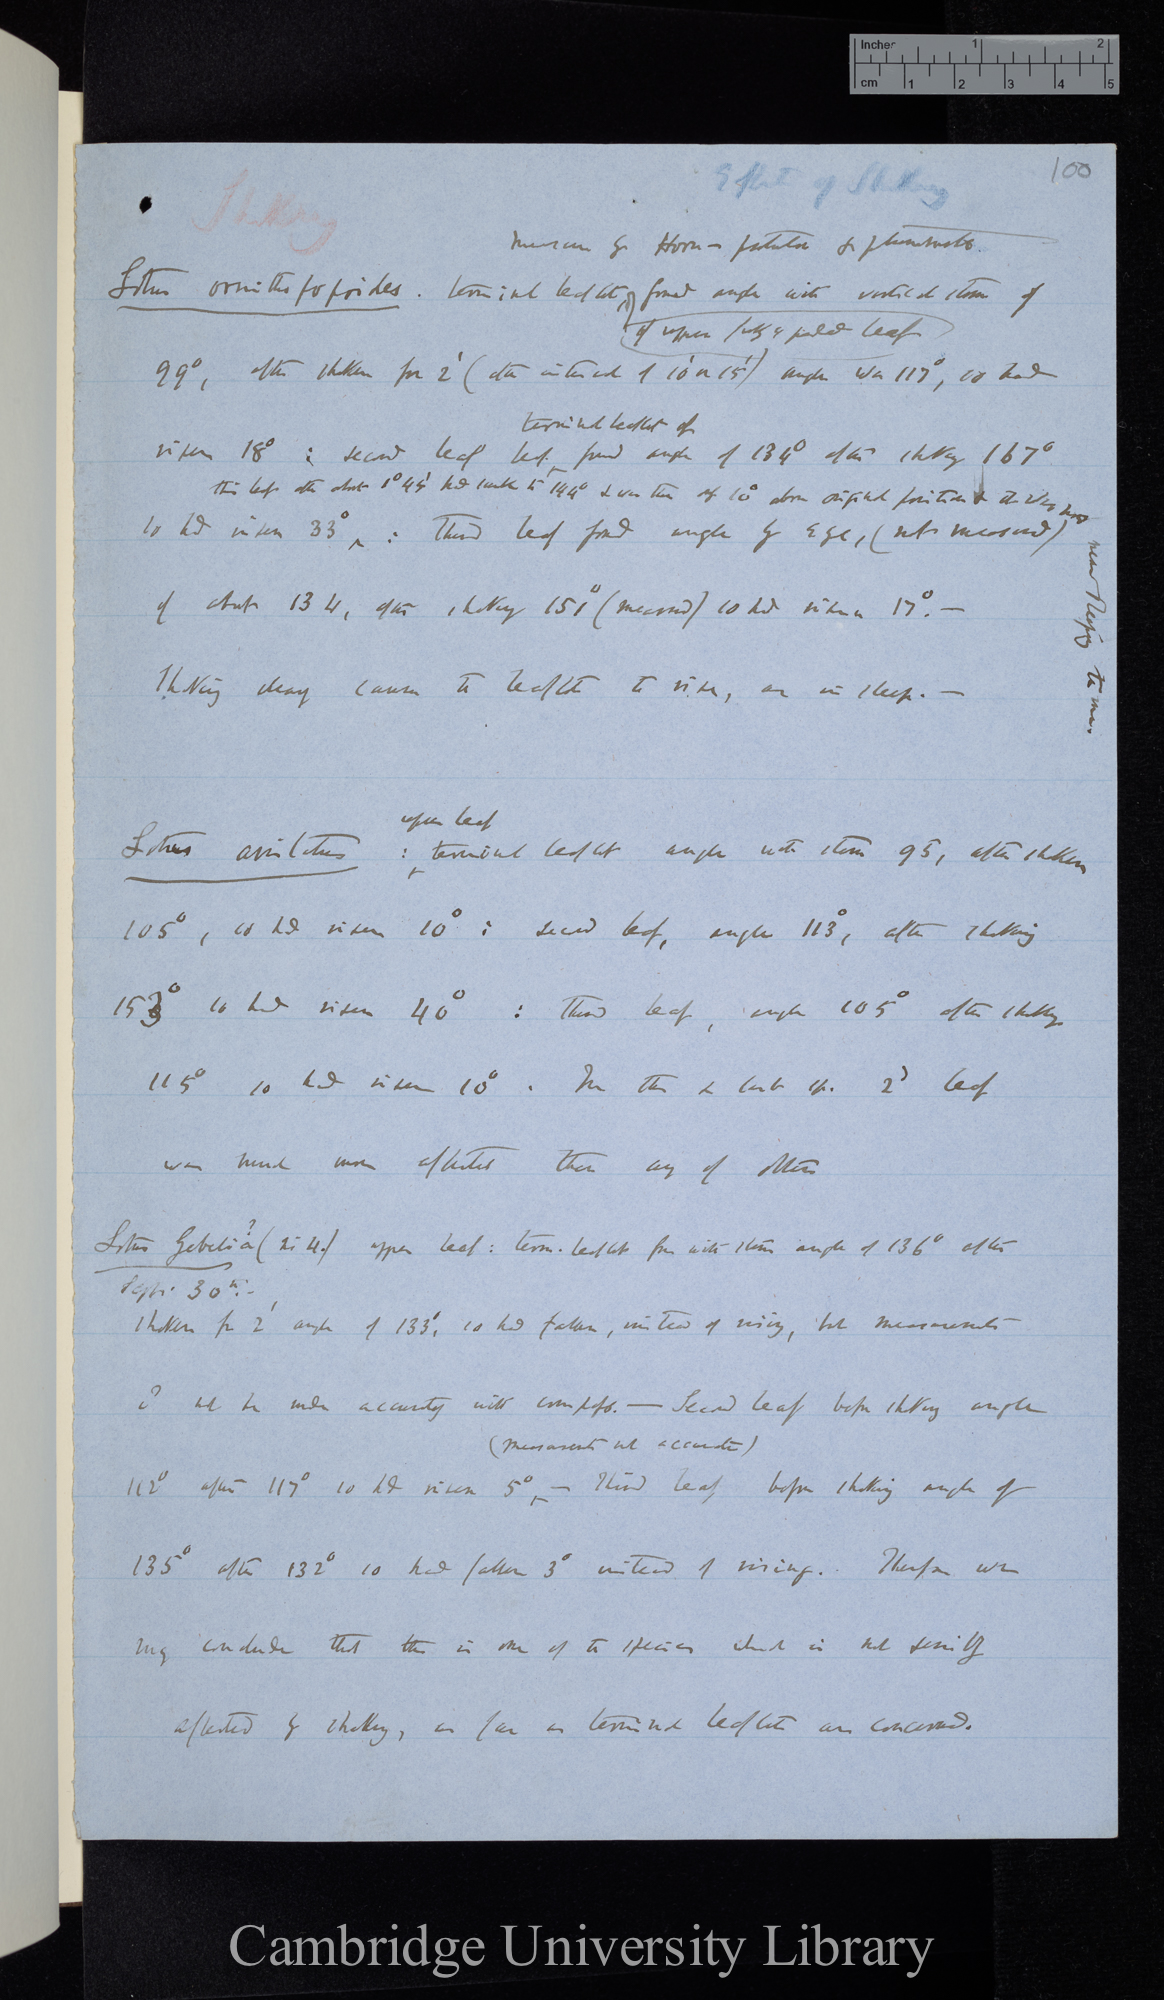 Inches 1 2
cm 1 2 3 4 5
100
Effect of Shaking
Shaking
measure by Horn-protractor & plumb
Lotus ornithopopoides. terminal leaflet formed angle with vertical stem of
of upper fully leaf
99°, after shaken for 2' (after interval of 10' or 15') angle was 117°, so had
terminal leaflet of
risen 18° : second leaf formed angle of 134° after shaking 167°
this leaf after about 1° 45' had sunk to 144° & was then of 10° above original position & it was now
near sleeping time.
so had risen 33° : Third leaf formed angle by eye, (not measured)
of about 134, after shaking 151° (measured) so had risen 17°. —
Shaking clearly causes the leaflets to rise, as in sleep. —
upper leaf
Lotus : terminal leaflet angle with stem 95, after shaken
105°, so had risen 10° : second leaf, angle 113°, after shaking
153° so had risen 40° : Third leaf, angle 105° after shaking
115° so had risen 10°. In this & last sp. 2d leaf
was much more affected than any of others
Lotus Gebelia? upper leaf : term. leaflet form with stem angle of 136° after
Sept. 30th. —
shaken for 2' angle of 133°, so had fallen, instead of rising, but measurements
not be made accurately with compass. — Second leaf before shaking angle
(measurements not accurate)
112° after 117° so had risen 5°, — Third leaf before shaking angle of
135° after 132° so had fallen 3° instead of rising. Therefore we
may conclude that this is one of the species which is not sensibly
affected by shaking, as far as terminal leaflets are concerned.
Cambridge University Library